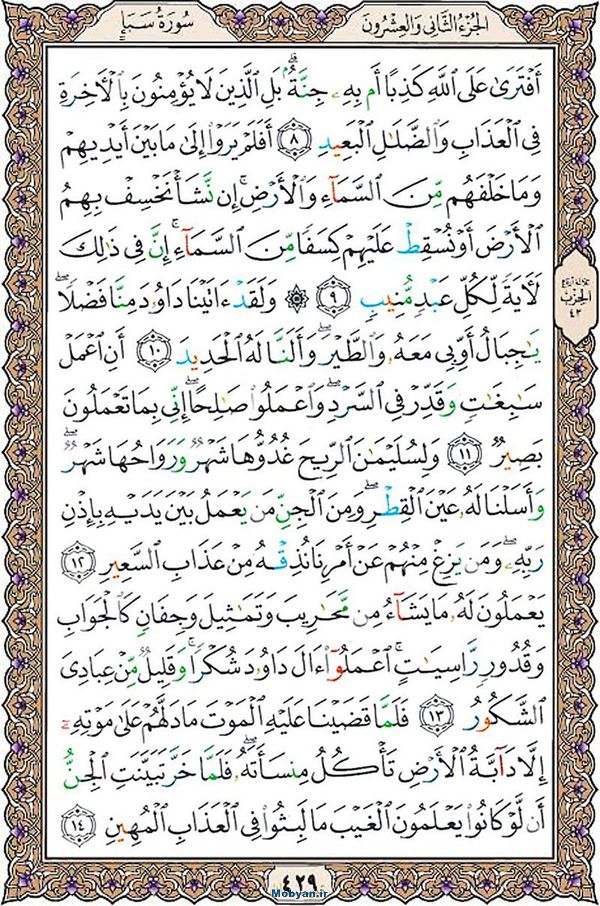 الجزء الثاني والعشرون
سورة سبإ
أَفْتَرَىٰ عَلَى ٱللَّهِ كَذِبًا أَم بِهِۦ جِنَّةٌۢ ۗ بَلِ ٱلَّذِينَ لَا يُؤْمِنُونَ بِٱلْأٓخِرَةِ
فِى ٱلْعَذَابِ وَٱلضَّلَٰلِ ٱلْبَعِيدِ ٨ أَفَلَمْ يَرَوْا۟ إِلَىٰ مَا بَيْنَ أَيْدِيهِمْ
وَمَا خَلْفَهُم مِّنَ ٱلسَّمَآءِ وَٱلْأَرْضِ ۚ إِن نَّشَأْ نَخْسِفْ بِهِمُ
ٱلْأَرْضَ أَوْ نُسْقِطْ عَلَيْهِمْ كِسَفًا مِّنَ ٱلسَّمَآءِ ۚ إِنَّ فِى ذَٰلِكَ
لَأٓيَةً لِّكُلِّ عَبْدٍ مُّنِيبٍ ٩ ۞ وَلَقَدْ ءَاتَيْنَا دَاوُۥدَ مِنَّا فَضْلًا ۖ
يَٰجِبَالُ أَوِّبِى مَعَهُۥ وَٱلطَّيْرَ ۖ وَأَلَنَّا لَهُ ٱلْحَدِيدَ ١٠ أَنِ ٱعْمَلْ
سَٰبِغَٰتٍ وَقَدِّرْ فِى ٱلسَّرْدِ ۖ وَٱعْمَلُوا۟ صَٰلِحًا ۖ إِنِّى بِمَا تَعْمَلُونَ
بَصِيرٌ ١١ وَلِسُلَيْمَٰنَ ٱلرِّيحَ غُدُوُّهَا شَهْرٌ وَرَوَاحُهَا شَهْرٌ ۖ
وَأَسَلْنَا لَهُۥ عَيْنَ ٱلْقِطْرِ ۖ وَمِنَ ٱلْجِنِّ مَن يَعْمَلُ بَيْنَ يَدَيْهِ بِإِذْنِ
رَبِّهِۦ ۖ وَمَن يَزِغْ مِنْهُمْ عَنْ أَمْرِنَا نُذِقْهُ مِنْ عَذَابِ ٱلسَّعِيرِ ١٢
يَعْمَلُونَ لَهُۥ مَا يَشَآءُ مِن مَّحَٰرِيبَ وَتَمَٰثِيلَ وَجِفَانٍ كَٱلْجَوَابِ
وَقُدُورٍ رَّاسِيَٰتٍ ۚ ٱعْمَلُوٓا۟ ءَالَ دَاوُۥدَ شُكْرًا ۚ وَقَلِيلٌ مِّنْ عِبَادِىَ
ٱلشَّكُورُ ١٣ فَلَمَّا قَضَيْنَا عَلَيْهِ ٱلْمَوْتَ مَا دَلَّهُمْ عَلَىٰ مَوْتِهِۦٓ
إِلَّا دَآبَّةُ ٱلْأَرْضِ تَأْكُلُ مِنسَأَتَهُۥ ۖ فَلَمَّا خَرَّ تَبَيَّنَتِ ٱلْجِنُّ
أَن لَّوْ كَانُوا۟ يَعْلَمُونَ ٱلْغَيْبَ مَا لَبِثُوا۟ فِى ٱلْعَذَابِ ٱلْمُهِينِ ١٤
الحزب
٤٣
٤٢٩
Mobyan.ir